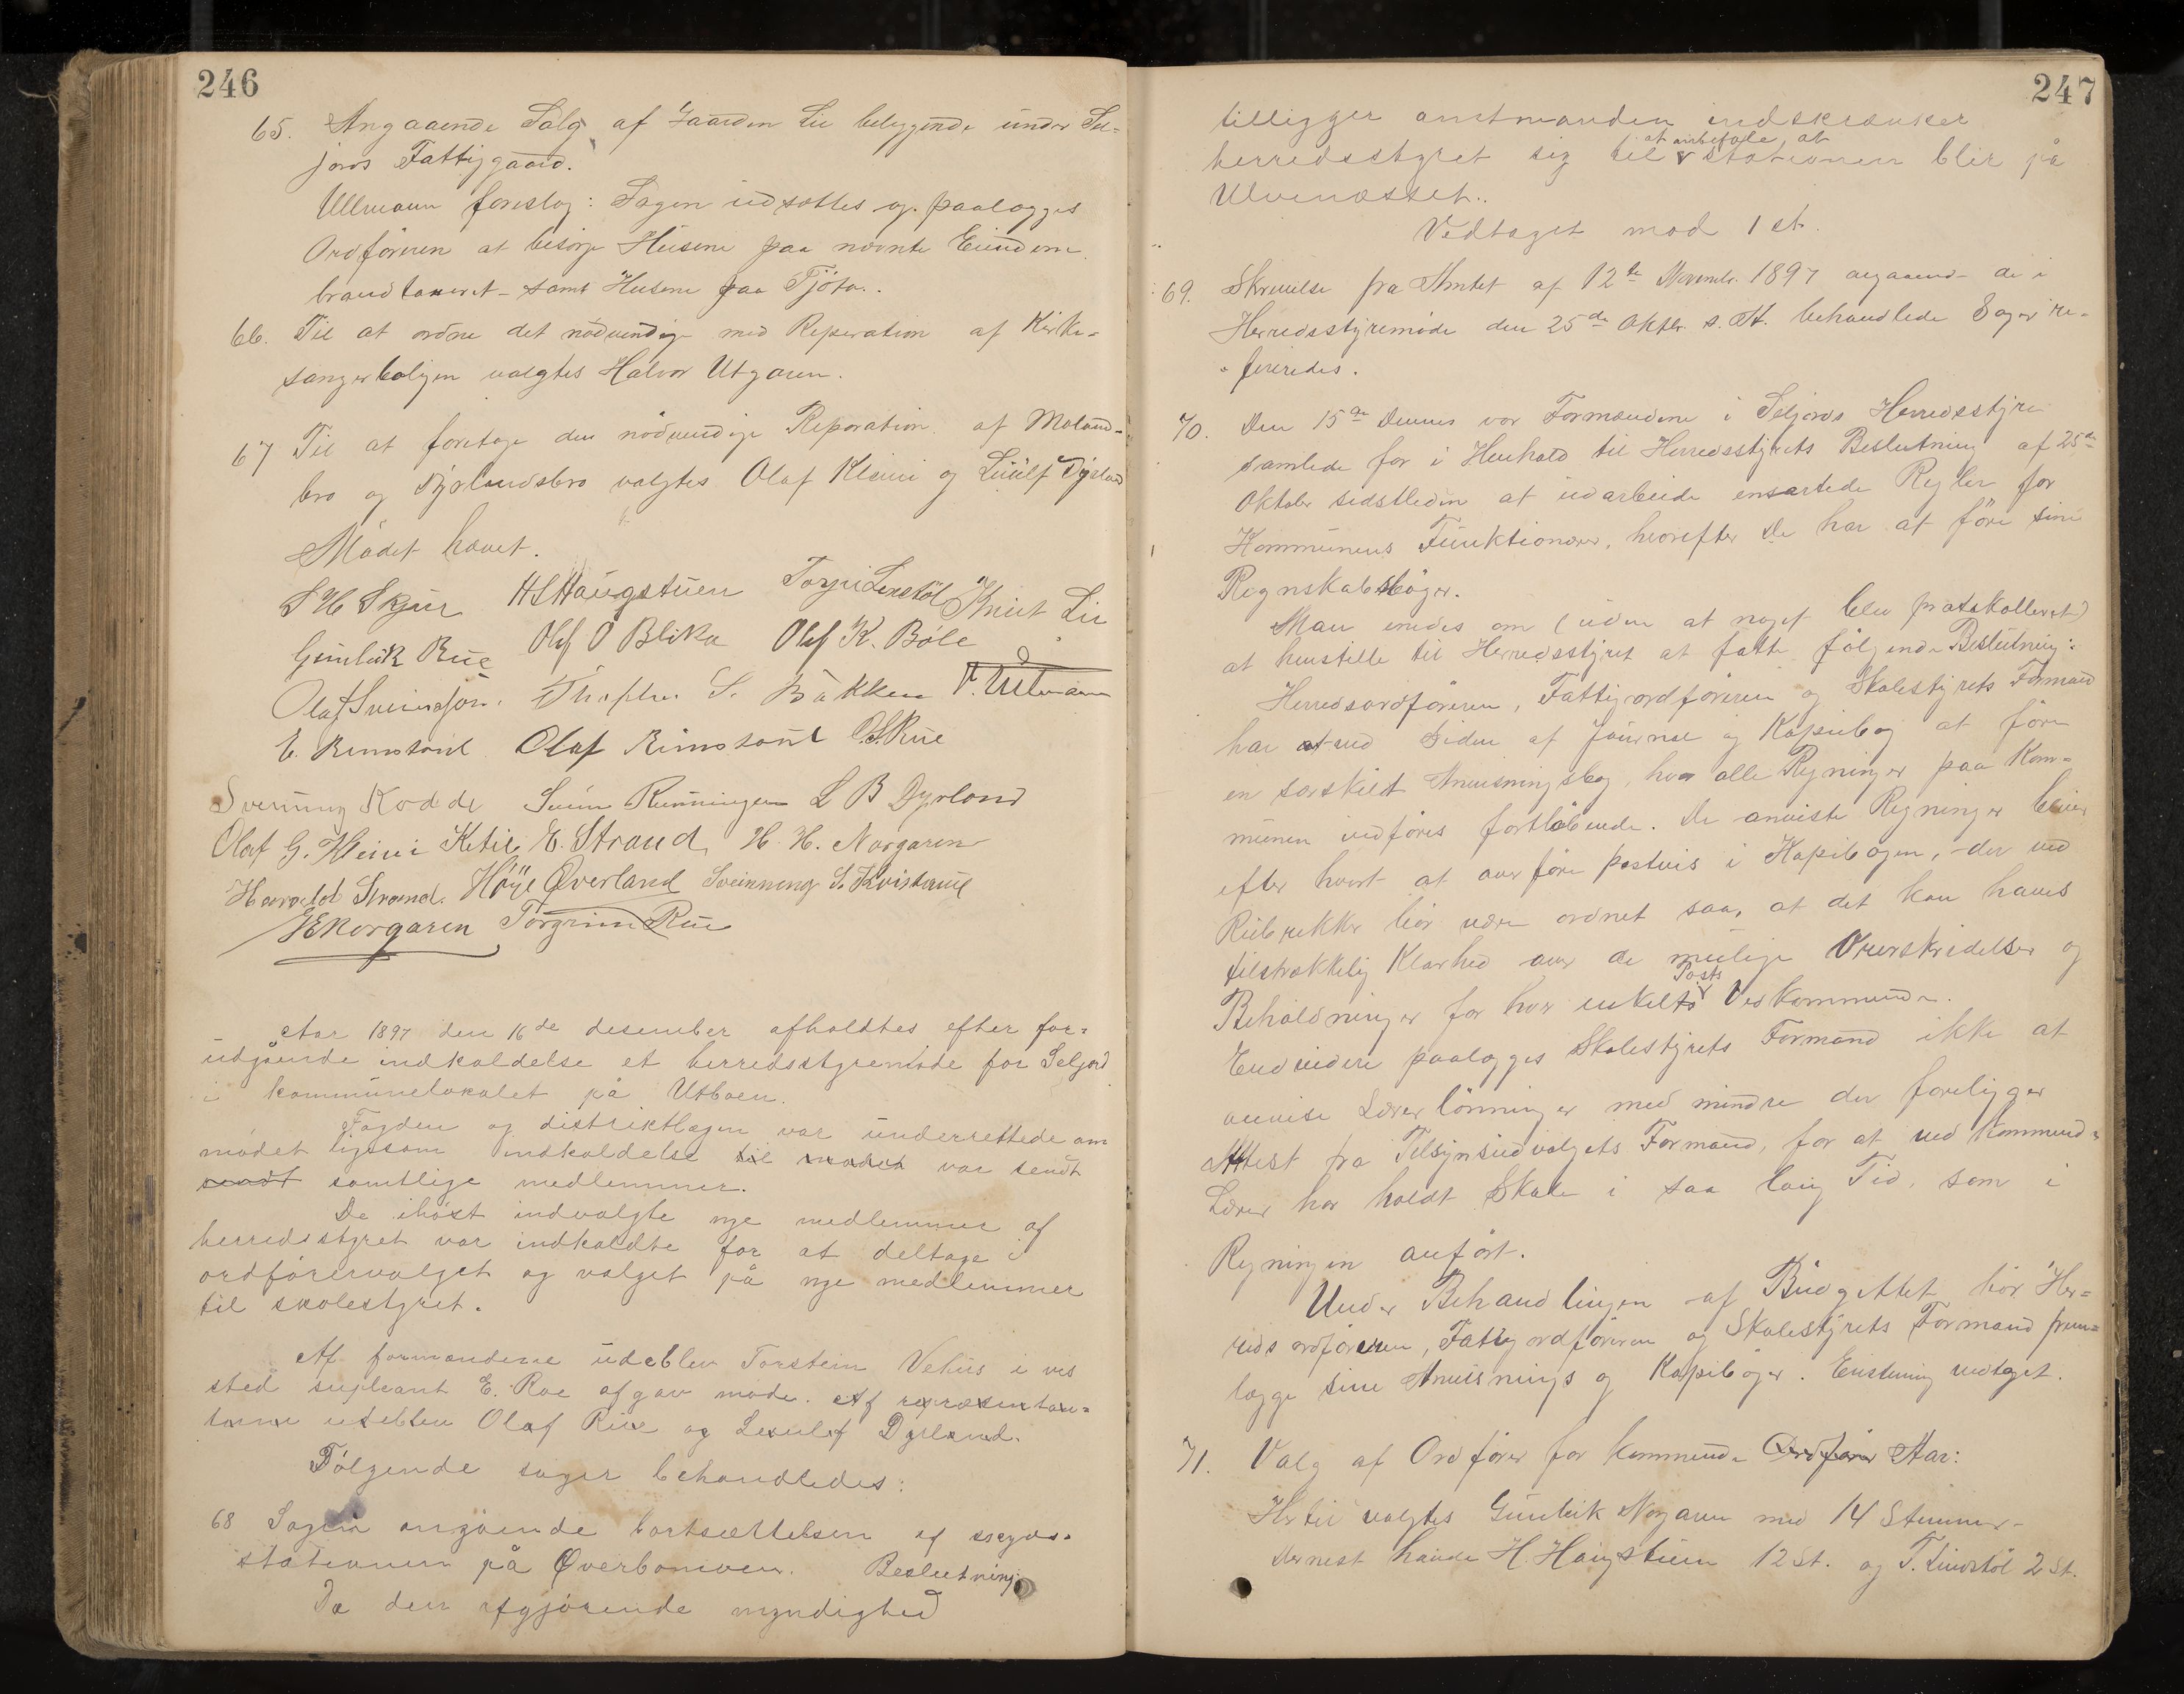 246
65. Angaaende Salg af Gaarden Lie beliggende under Sel=
jords Fattiggaard.
Ullmann foreslog: Sagen udsættes og paalægges
Ordføreren at besørge Husene paa nævnte Eiendom
brandtaxeret samt Husene paa Tjöta.
66. Til at ordne det nödvendige med Reperation af Kirke=
sangerboligen valgtes Halvor Utgaren.
67 Til at foretage den nödvendige Reparation af Moland=
bro og Dyrlandsbro valgtes Olaf Kleivi og Liulf Dyrland
Mödet hævet.
S H Skjær H H Haugstuen Torgri Lenstöl Knut Lie
Gunleik Rue Olef O Blika Olef K. Böle
Olaf Sveinssön. S. Bakken V. Ullmann
E. Rimsönl Olaf Rimsönl O. S. Rue
Svenning Kodde Svein Runningen L B Dyrland
Olaf G. Kleivi Ketil E. Strand H. H. Norgaren
Harald Strand. Höije Øverland Sveinung S. Kvistaul
G E Norgaren Torgrim Rue
Aar 1897 den 16de desember afholdtes efter for=
udgående indkaldelse et herredsstyremöde for Seljord
i kommunelokalet på Utboen.
Fogden og distriktlægen var underrettede om
mödet ligesom indkaldelse til mödet var sendt
sendt samtlige medlemmer.
De ihöst indvalgte nye medlemmer af
herredsstyret var indkaldte for at deltage i
ordförervalget og valget på nye medlemmer
til skolestyret.
Af formændene udeblev Torstein Vehus i hvis
sted supleant E. Roe afgav möde. Af repræsentan=
terne udeblev Olaf Rue og Leiulf Dyrland.
Følgende sager behandledes:
68 Sagen angående bortsættelsen af skyds=
stationen på Øverbömoen. Beslutning:
Da den afgjörende myndighed
247
tilligger amtmanden indskrænker
herredsstyret sig til at anbefale at stationen blir på
Ulvenæsset.
Vedtaget mod 1 st.
69. Skrivelse fra Amtet af 12te Novembr. 1897 angaaende de i
Herredsstyremöde den 25de Oktbr. s. A. behandlede Sager re=
fereredes.
70. Den 15de Dennes var Formændene i Seljords Herredsstyre
samlede for i Henhold til Herredsstyrets Beslutning af 25de
Oktober sidstleden at udarbeide ensartede Regler for
Kommunens Funktionærer, hvorefter de har at före sine
Regnskabsböger.
Man enedes om (uden at noget blev protokolleret)
at henstille til Herredsstyret at fatte følgende Beslutning:
Herredsordföreren, Fattigordföreren og Skolestyrets Formand
har at ved Siden af Journal og Kopiebog at före
en særskilt Anvisningsbog, hvor alle Regninger paa Kom=
munen indföres fortlöbende. De anviste Regninger bliver
efter hvert at overföre postvis i Kopibogen, der ved
Rubrikker bör være ordnet saa, at det kan haves
tilstrækkelig Klarhed over de mulige Overskridelser og
Beholdninger for hver enkelts Posts Vedkommende.
Endvidere paalægges Skolestyrets Formand ikke at
anvise Lærerlönninger med mindre der foreligger
Attest fra Tilsynsudvalgets Formand, for at vedkommende
Lærer har holdt Skole i saa lang Tid, som i
Regningen anfört.
Under Behandlingen af Budgettet bör Her=
redsordföreren, Fattigordföreren og Skolestyrets Formand frem=
lægge sine Anvisnings og Kopiböger. Enstemmig vedtaget.
71. Valg af Ordförer for kommende Ordförer Aar:
Hertil valgtes Gunleik Norgaren med 14 Stemmer.
Dernest havde H. Haugstuen 12 St. og T. Lindstöl 2 St.